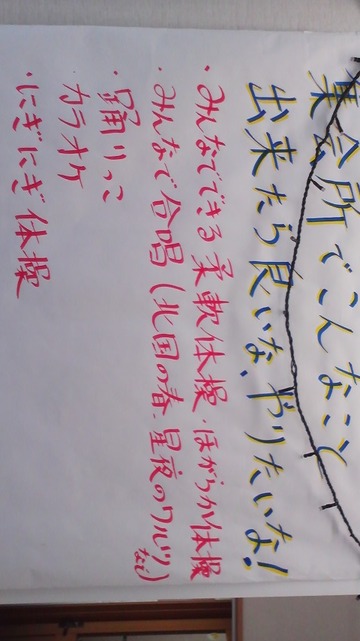 集会所でこんなこと
出来たら良いな、やりたいな!
・みんなでできる柔軟体操・ほがらか体操
・みんなで合唱(北国の春、星夜のワルツなど)
・踊りっこ
カラオケ
・にぎにぎ体操